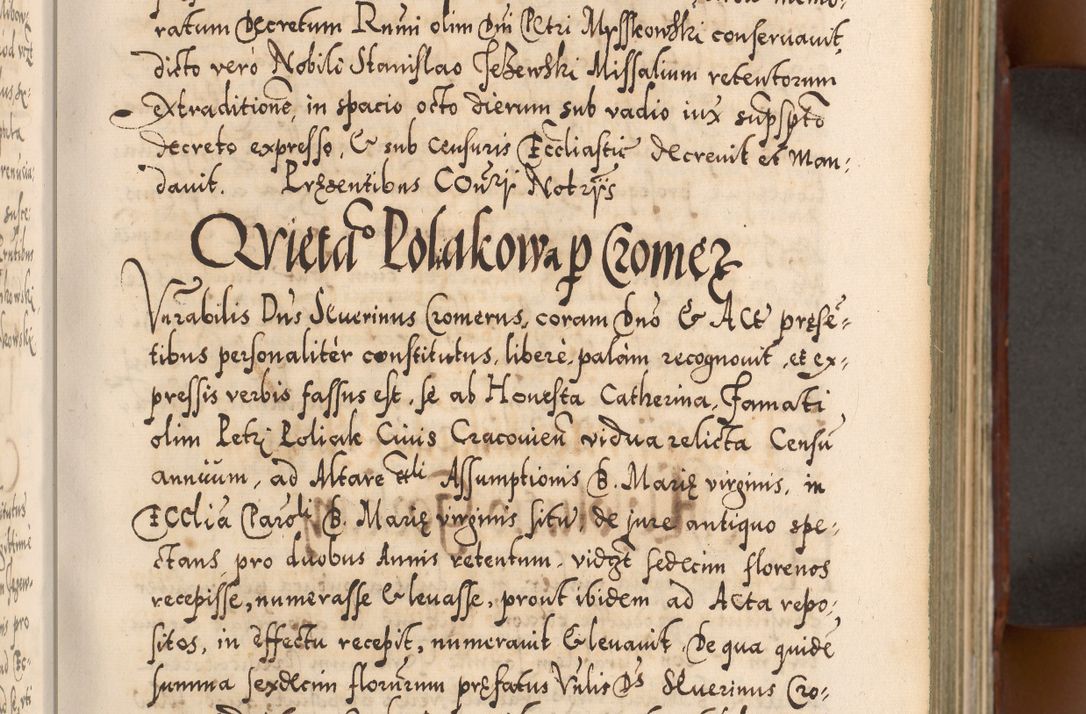 ratum Decretum Rnni olim Dni Petri Mysskowski conseruauit,
dicto vero Nobili Stanislao Jeżewski Missalium retentorum
extraditionẽ, in spacio octo dierum sub vadio iux supsҫto
decreto expresso, & sub Censuris Eccliastic decreuit et Man-
dauit. Pręsentibus COurij Notrijs
Qvietaᵒ Polakowa p Cromeʒ
Vnrabilis Dns Seuerinus Cromerus, coram Dno & Act pręsẽ-
tibus personalitèr constitutus, liberè, palàm recognouit, et ex-
pressis verbis fassus est, se ab Honesta Catherina, Famati
olim Petri Poliak Ciuis Cracouien vidua relicta Censũ
annuum, ad Altare ttli Assumptionis B. Marię virginis, in
Ecclia Paroli B. Marię virginis situ, de jure antiquo spe-
ctans, pro duobus Annis retentum, vidzt sedecim florenos
recepisse, numerasse & leuasse, prout ibidem ad Acta repo-
sitos, in effectu recepit, numerauit & leuauit. De qua quidẽ
summa sexdecim florurum pręfatus Vnlis Ds Seuerinus Cro-